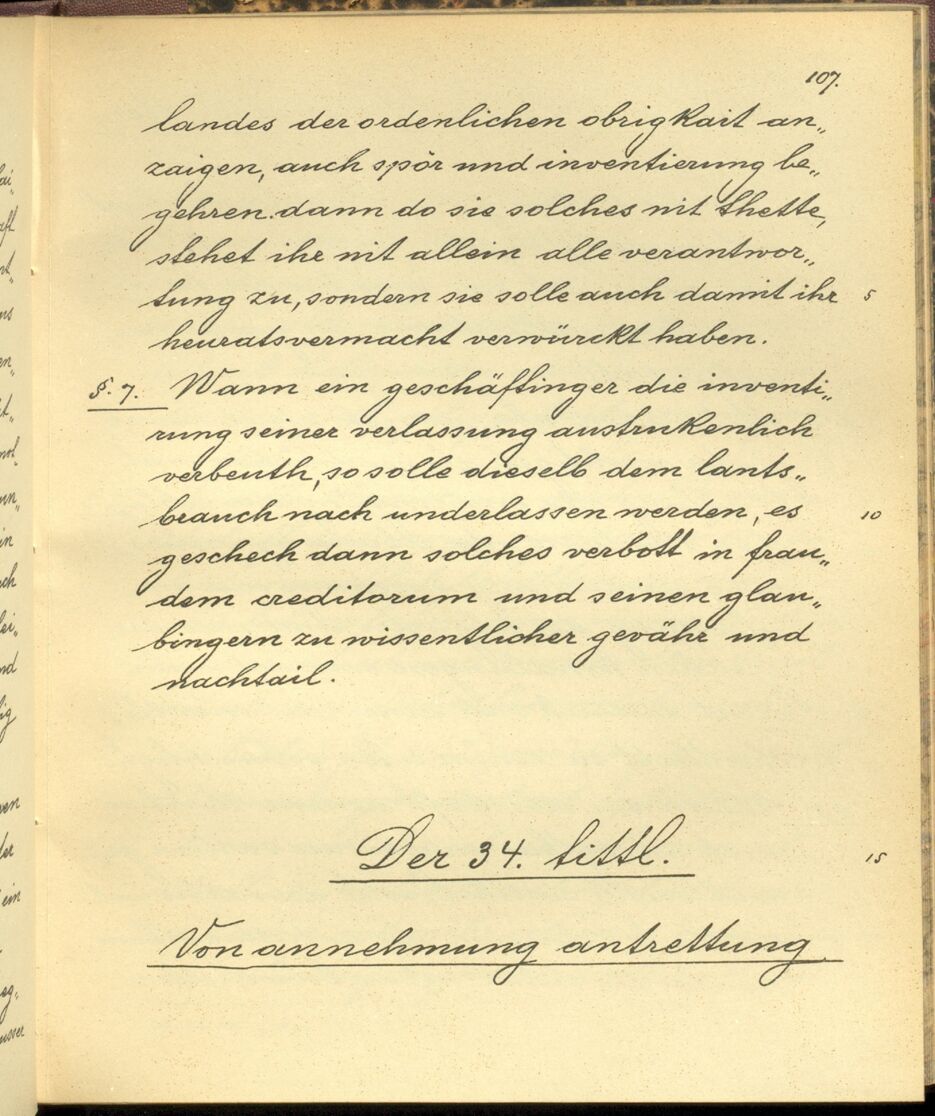 107.
landes der ordenlichen obrigkait an„
zaigen, auch spör und inventierung be„
gehren. dann do sie solches nit thette,
stehet ihr nit allein alle verantwor„
tung zu, sondern sie solle auch damit ihr 5
heuratsvermacht verwürckt haben.
§. 7. Wann ein geschäfftinger die inventi„
rung seiner verlassung austrukenlich
verbeuth, so solle dieselb dem lants„
brauch nach underlassen werden, es 10
geschech dann solches verbott in frau„
dem creditorum und seinen glau„
bingern zu wissentlicher gevähr und
nachtail.
Der 34. tittl. 15
Von annehmung antrettung